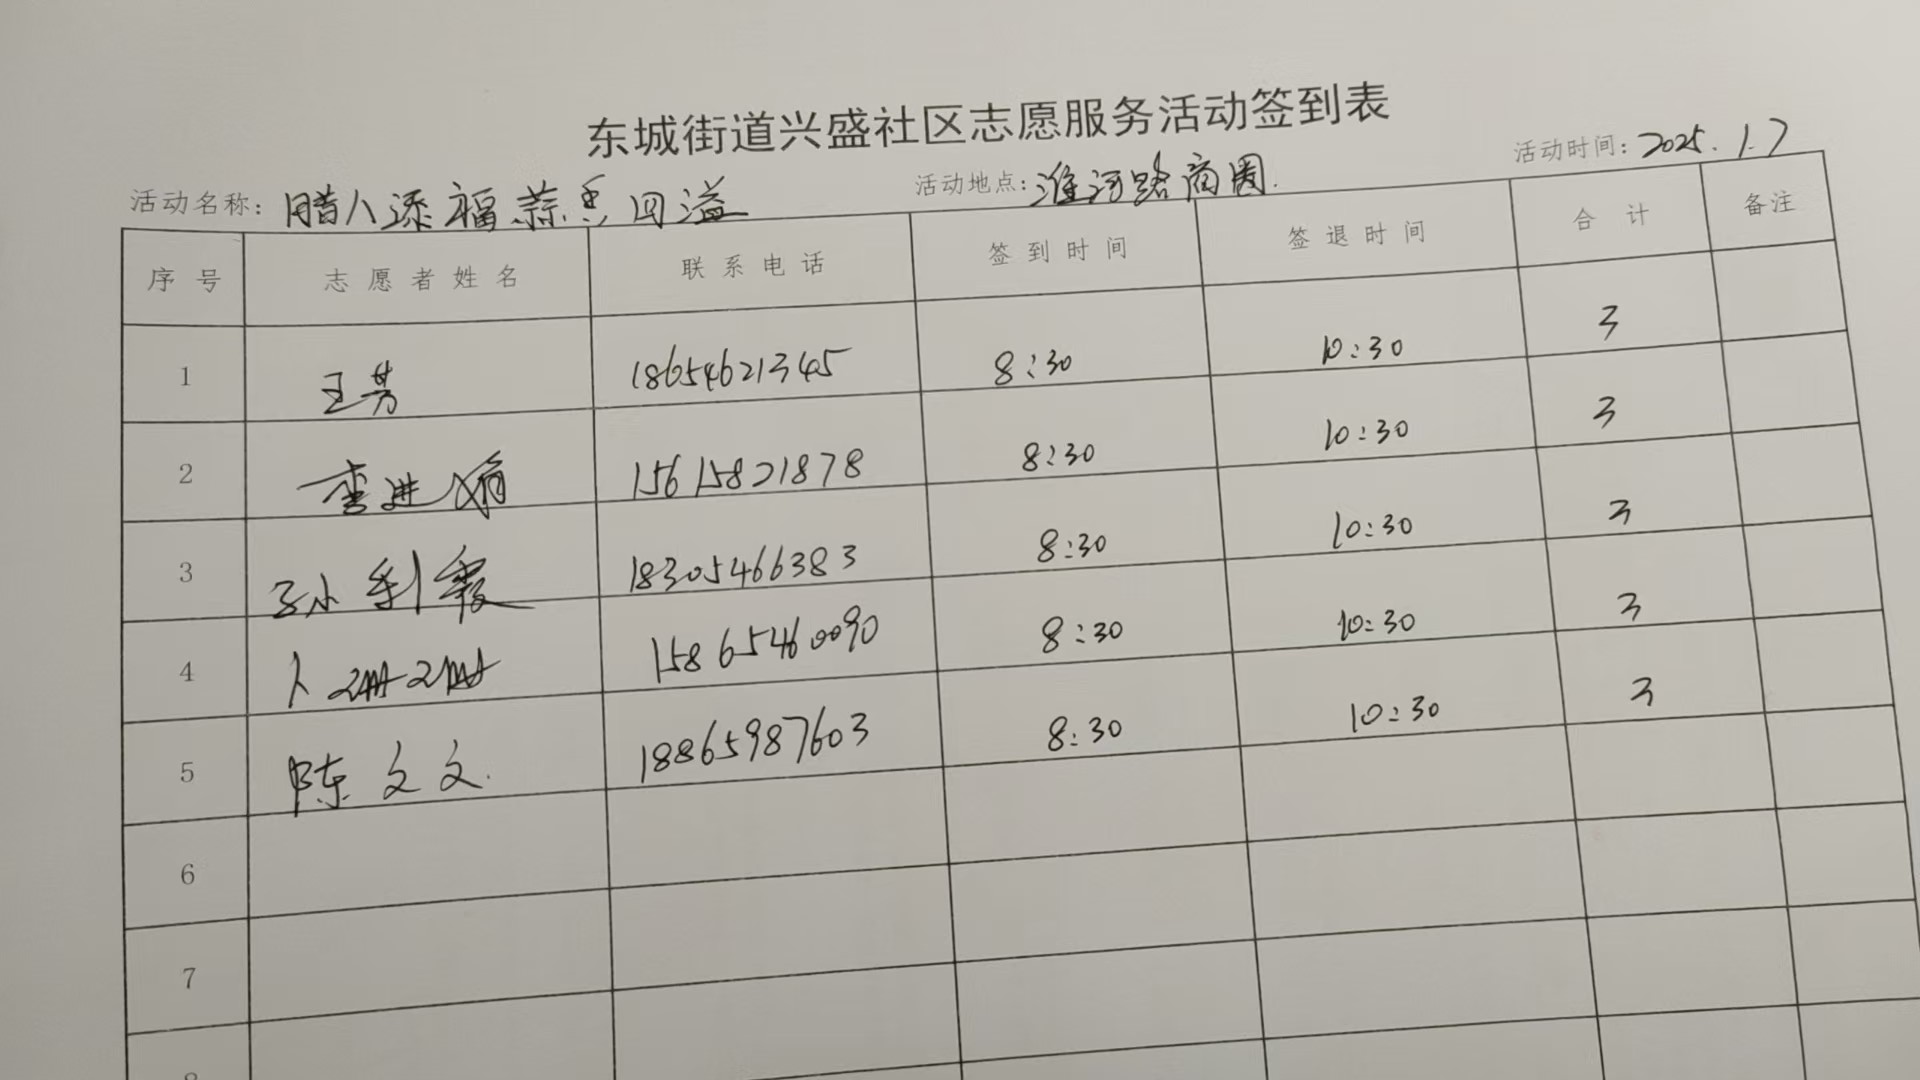 东城街道兴盛社区志愿服务活动签到表
活动名称: 腊八添福蒜香回溢 活动地点: 淮河路商圈. 活动时间: 2025.1.7
序号 志愿者姓名 联系电话 签到时间 签退时间 合计 备注
1 王芳 18654621345 8:30 10:30 3
2 李进娟 15615821878 8:30 10:30 3
3 孙利霞 18305466383 8:30 10:30 3
4 15865460090 8:30 10:30 3
5 陈文文. 18865987603 8:30 10:30 3
6
7
8